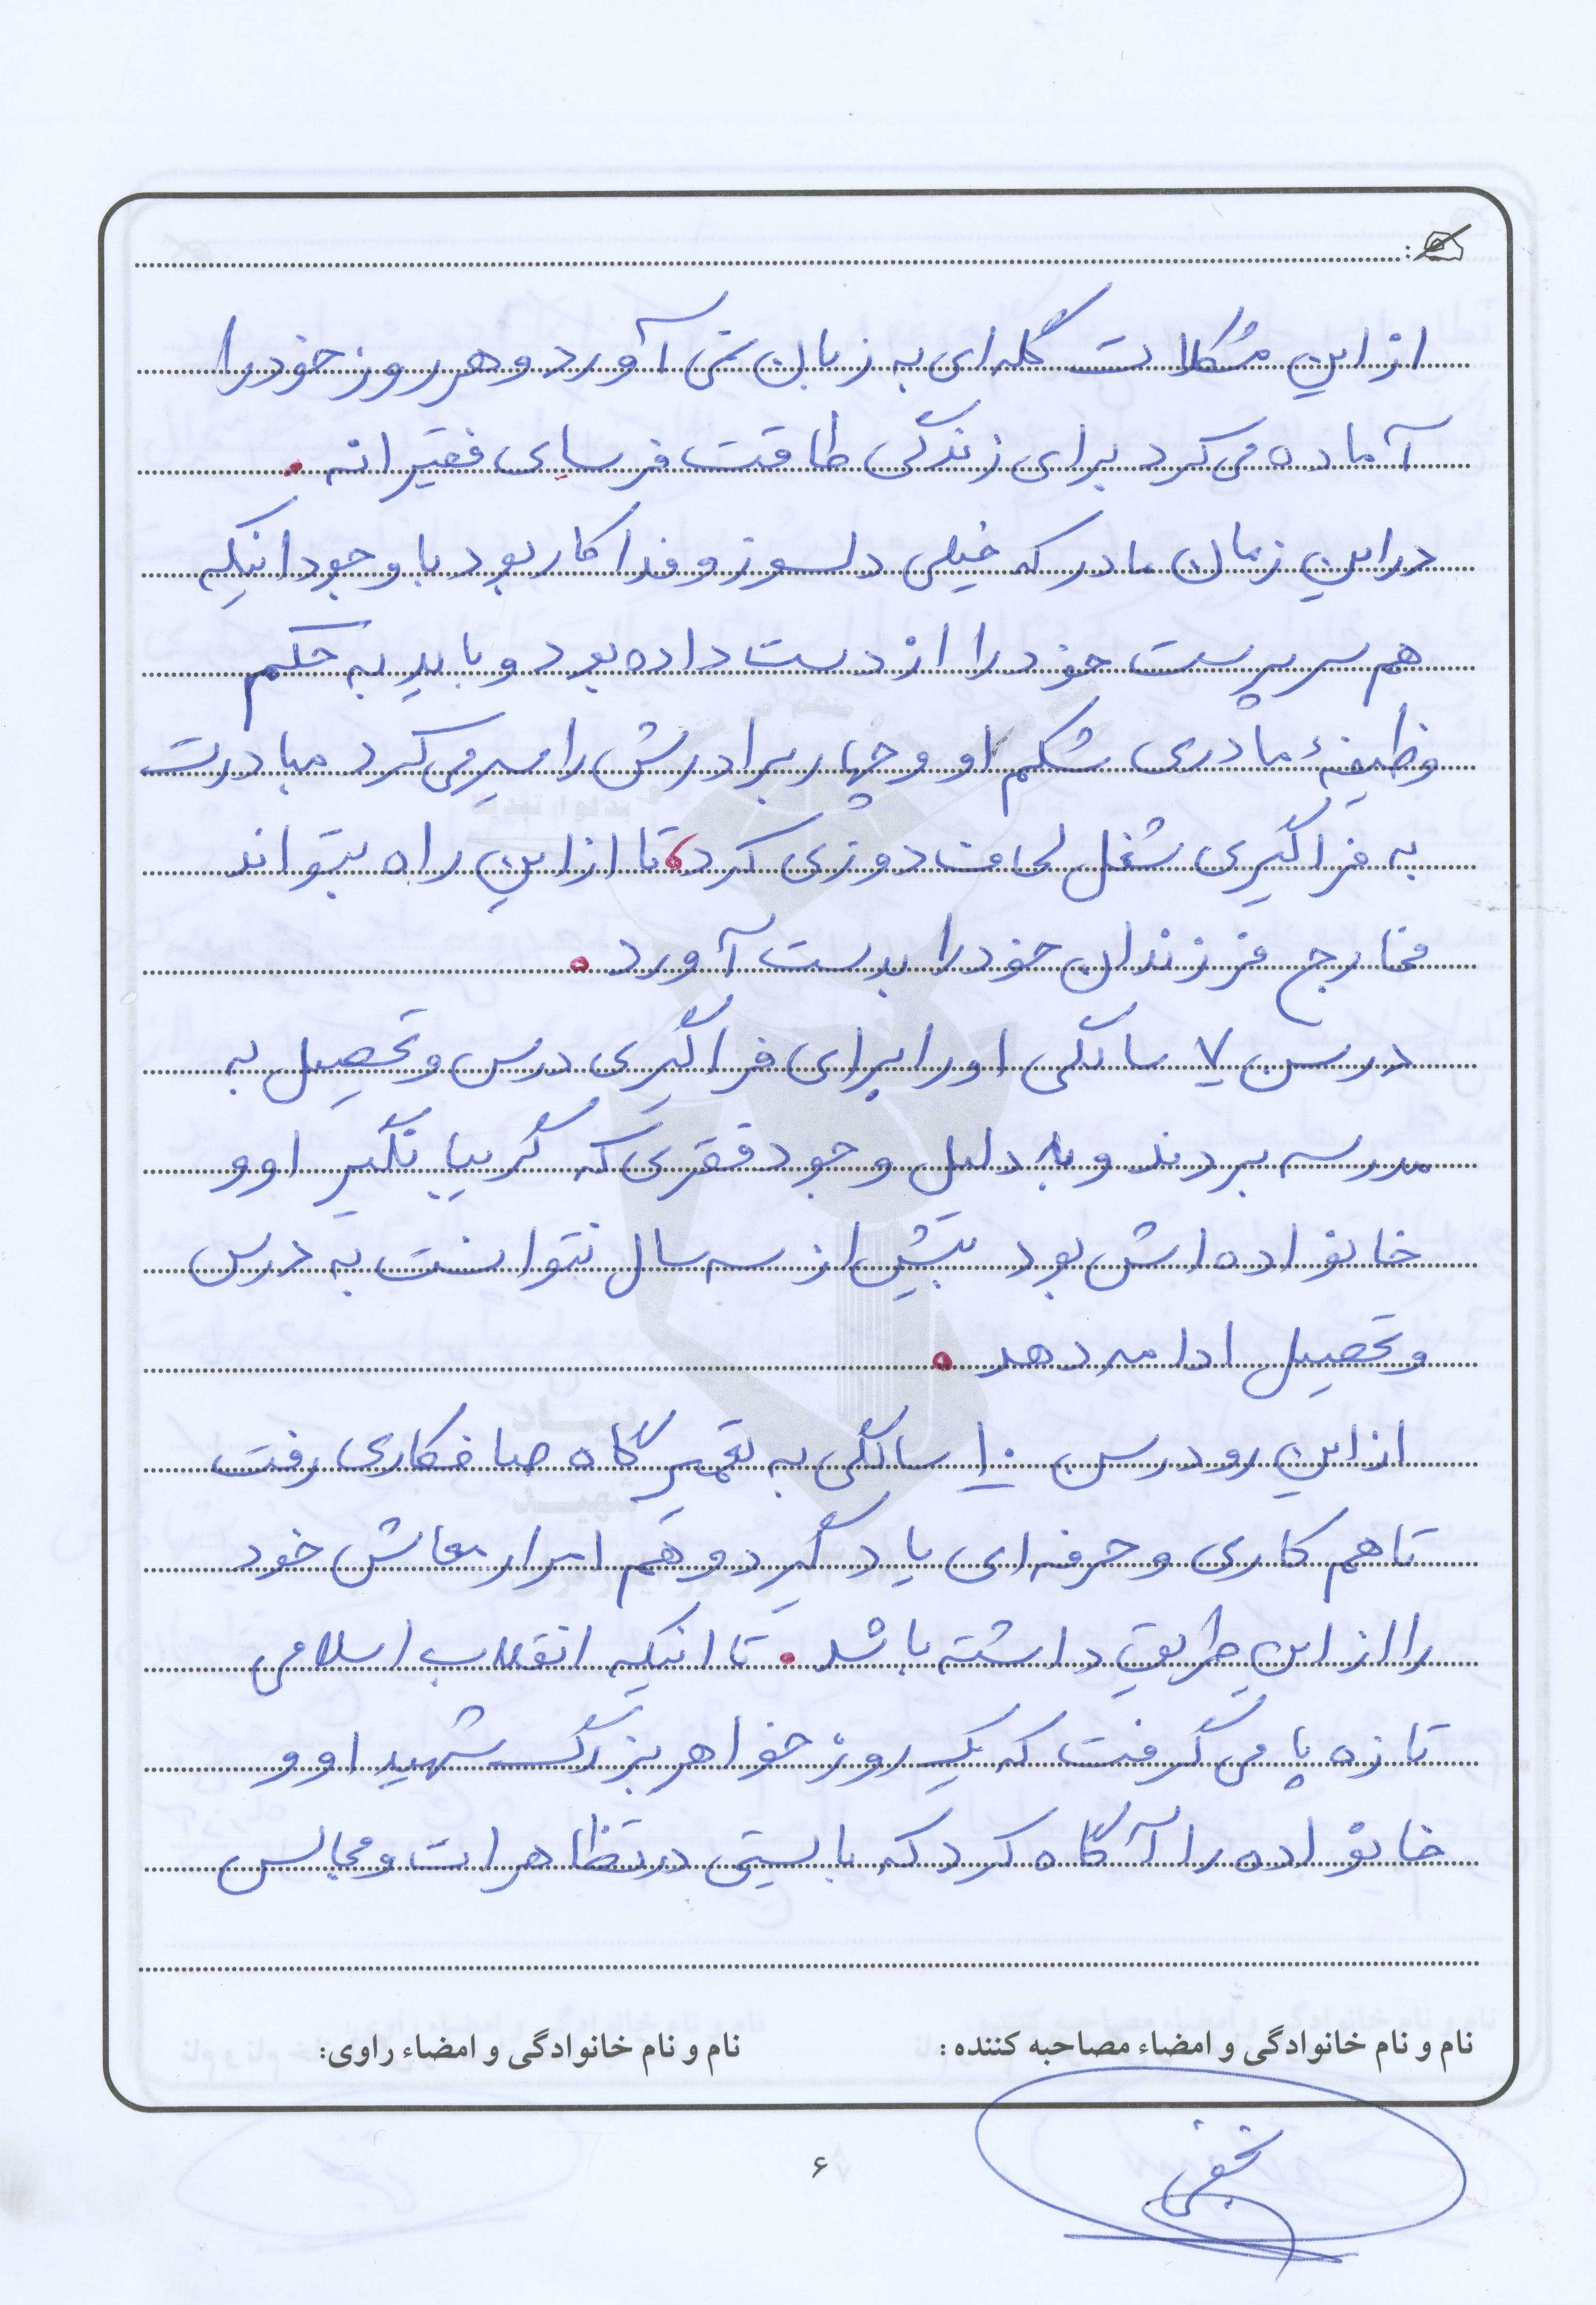 از این مشکلات گله ای به زبان نمی آورد و هر روز خود را
آماده می کرد برای زندگی طاقت فرسای فقیرانه .
در این زمان مادر که خیلی دلسوز و فداکار بود با وجود اینکه
هم سرپرست خود را از دست داده بود و باید به حکم
وظیفهٔ مادری شکم او و چهار برادرش را سیر می کرد مبادرت
به فراگیری شغل لحاف دوزی کرد، تا از این راه بتواند
مخارج فرزندان خود را بدست آورد .
در سن ۷ سالگی او را برای فراگیری درس و تحصیل به
مدرسه بردند و به دلیل وجود فقری که گریبانگیر او و
خانواده اش بود بیش از سه سال نتوانست به درس
و تحصیل ادامه دهد .
از این رو در سن ۱۰ سالگی به تعمیرگاه صافکاری رفت
تا هم کاری و حرفه ای یاد گیرد و هم امرار معاش خود
را از این طریق داشته باشد . تا اینکه انقلاب اسلامی
تازه پا می گرفت که یک روز خواهر بزرگ شهید او و
خانواده را آگاه کرد که بایستی در تظاهرات و مجالس
نام و نام خانوادگی و امضاء مصاحبه کننده :
نام و نام خانوادگی و امضاء راوی:
۶